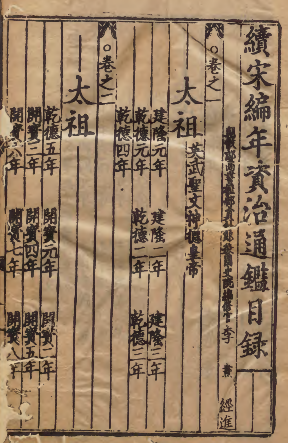 續宋編年資治通鑑目錄
李 燾 經進
○卷之一
太祖 英武聖文神德皇帝
建隆元年 建隆二年 建隆三年
乾德元年 乾德二年 乾德三年
乾德四年
○卷之二
太祖
乾德五年 開寶元年 開寶二年
開寶三年 開寶四年 開寶五年
開寶六年 開寶七年 開寶八年